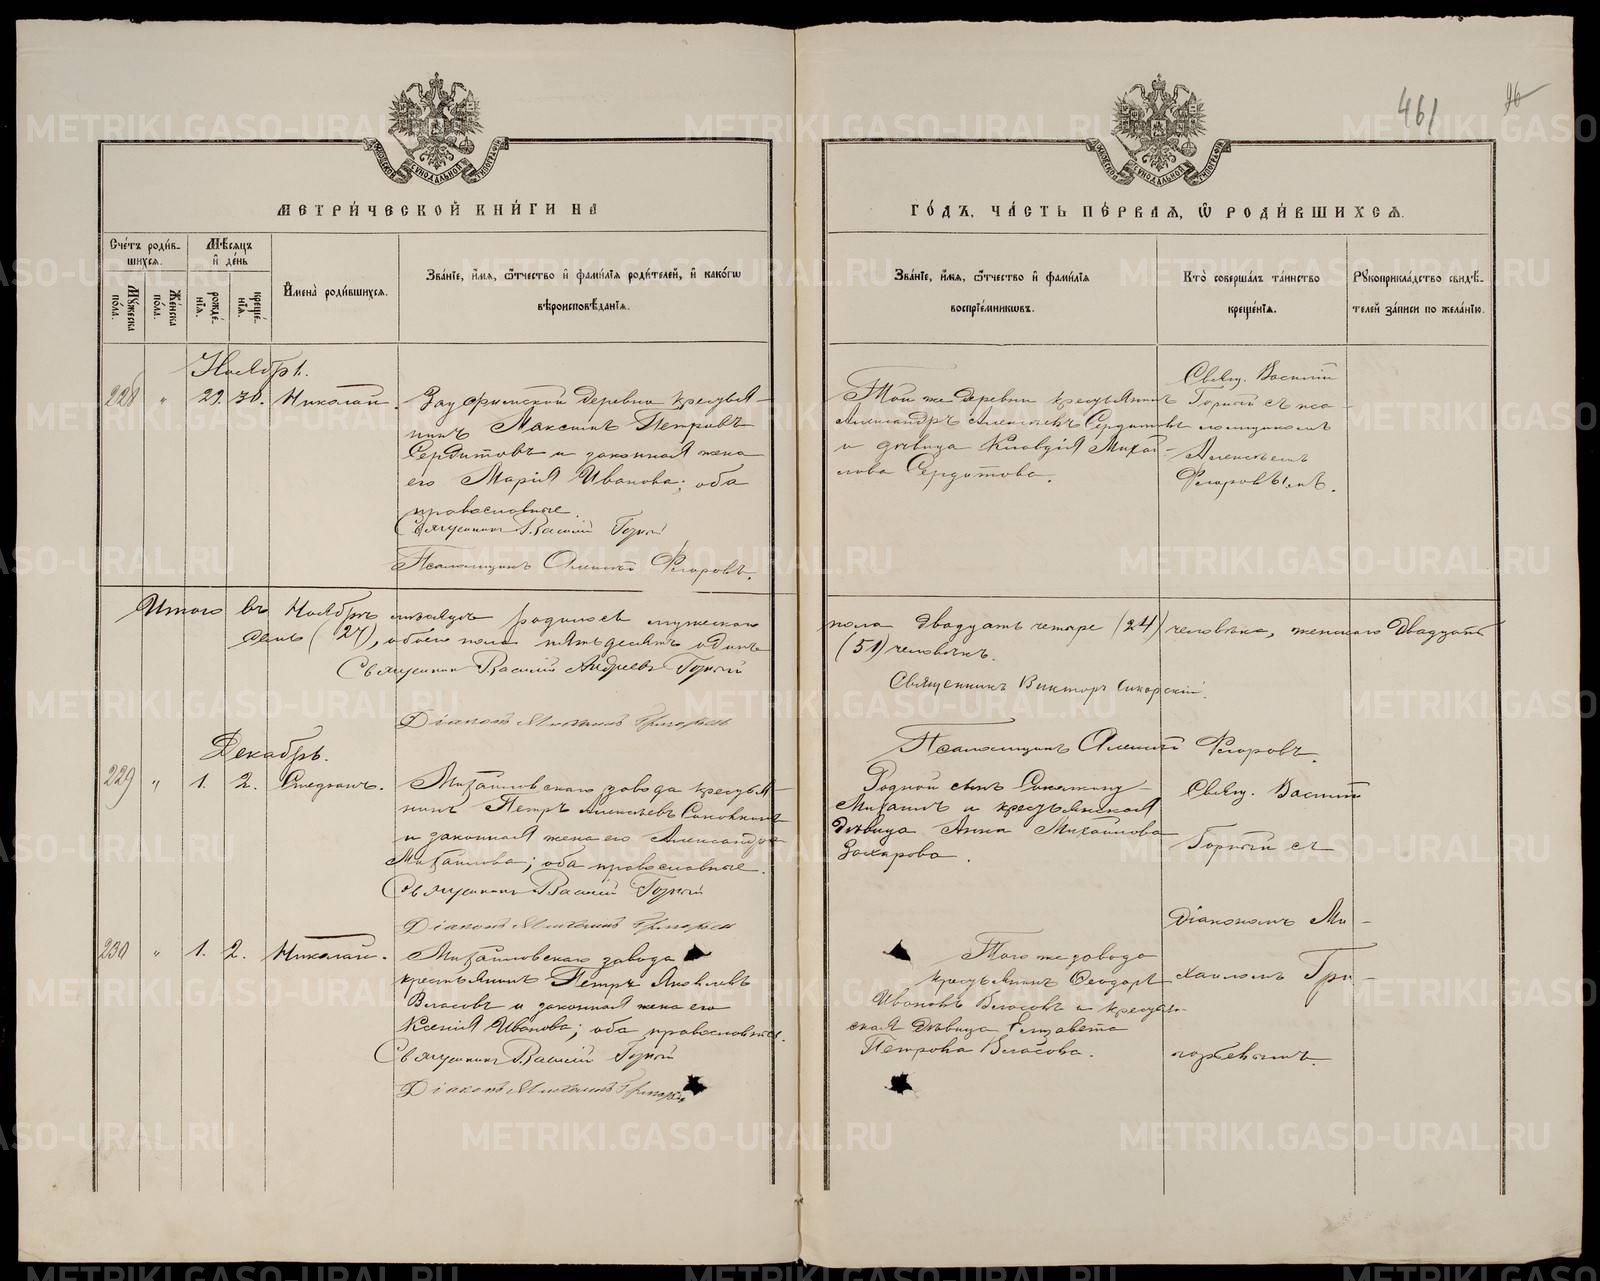 461
96
МЕТРИ́ЧЕСКОЙ КНИ́ГИ НА
ГО́ДЪ, ЧА́СТЬ ПЕ́РВАЯ, Ѡ҆ РОДИ́ВШИХСЯ.
Сче́тъ роди́в-
шихся.
Мѣ́сяцъ
и҆ де́нь
И҆мена̀ роди́вшихся.
Зва́нїе, и҆́мя, ѻ҆́тчество и҆ фами́лїя роди́телей, и҆ како́гѡ
вѣроисповѣ́данїя.
Му́жеска по́ла.
Же́нска по́ла.
рожде́-
нїя.
креще́-
нїя.
Зва́нїе, и҆́мя, ѻ҆́тчество и҆ фами́лїя
воспрїе́мниковъ.
Кто̀ соверша́лъ та́инство
креще́нїя.
Рꙋкоприкла́дство свидѣ́-
телей за́писи по жела́нїю.
Ноябрь.
228 " 29. 30. Николай.
Зауфимской деревни крестья-
нинъ Максимъ Петровъ
Сердитовъ и законная жена
его Марія Иванова; оба
православные.
Священникъ Василій Горный
Псаломщикъ Алексій Флоровъ.
Той же деревни крестьянинъ
Александръ Алексѣевъ Сердитовъ
и дѣвица Клавдія Михай-
лова Сердитова.
Свящ. Василій
Горный съ пса-
ломщикомъ
Алексѣемъ
Флоровымъ.
Итого въ Ноябрѣ мѣсяцѣ родилось мужескаго
пола двадцать четыре (24) человѣка, женскаго двадцать
семь (27), обоего пола пятьдесятъ одинъ
(51) человѣкъ.
Священникъ Василій Андреевъ Горный
Священникъ Викторъ Сикорскій.
Діаконъ Михаилъ Григорьев
Псаломщикъ Алексій Флоровъ.
Декабрь.
229 " 1. 2. Стефанъ.
Михайловскаго завода крестья-
нинъ Петръ Алексѣевъ
и законная жена его Александра
Михайлова; оба православные.
Священникъ Василій Горный
Діаконъ Михаилъ Григорьев
Родной сынъ
Михаилъ и крестьянская
дѣвица Анна Михайлова
Захарова.
Свящ. Василій
Горный съ
Діакономъ Ми-
хаиломъ Гри-
горьевымъ.
230 " 1. 2. Николай.
Михайловскаго завода
крестьянинъ Петръ Яковлевъ
Власовъ и законная жена его
Ксенія Иванова; оба православные.
Священникъ Василій Горный
Діаконъ Михаилъ Григорьев
Того же завода
крестьянинъ Ѳеодоръ
Ивановъ Власовъ и крестьян-
ская дѣвица Елизавета
Петрова Власова.
METRIKI.GASO-URAL.RU